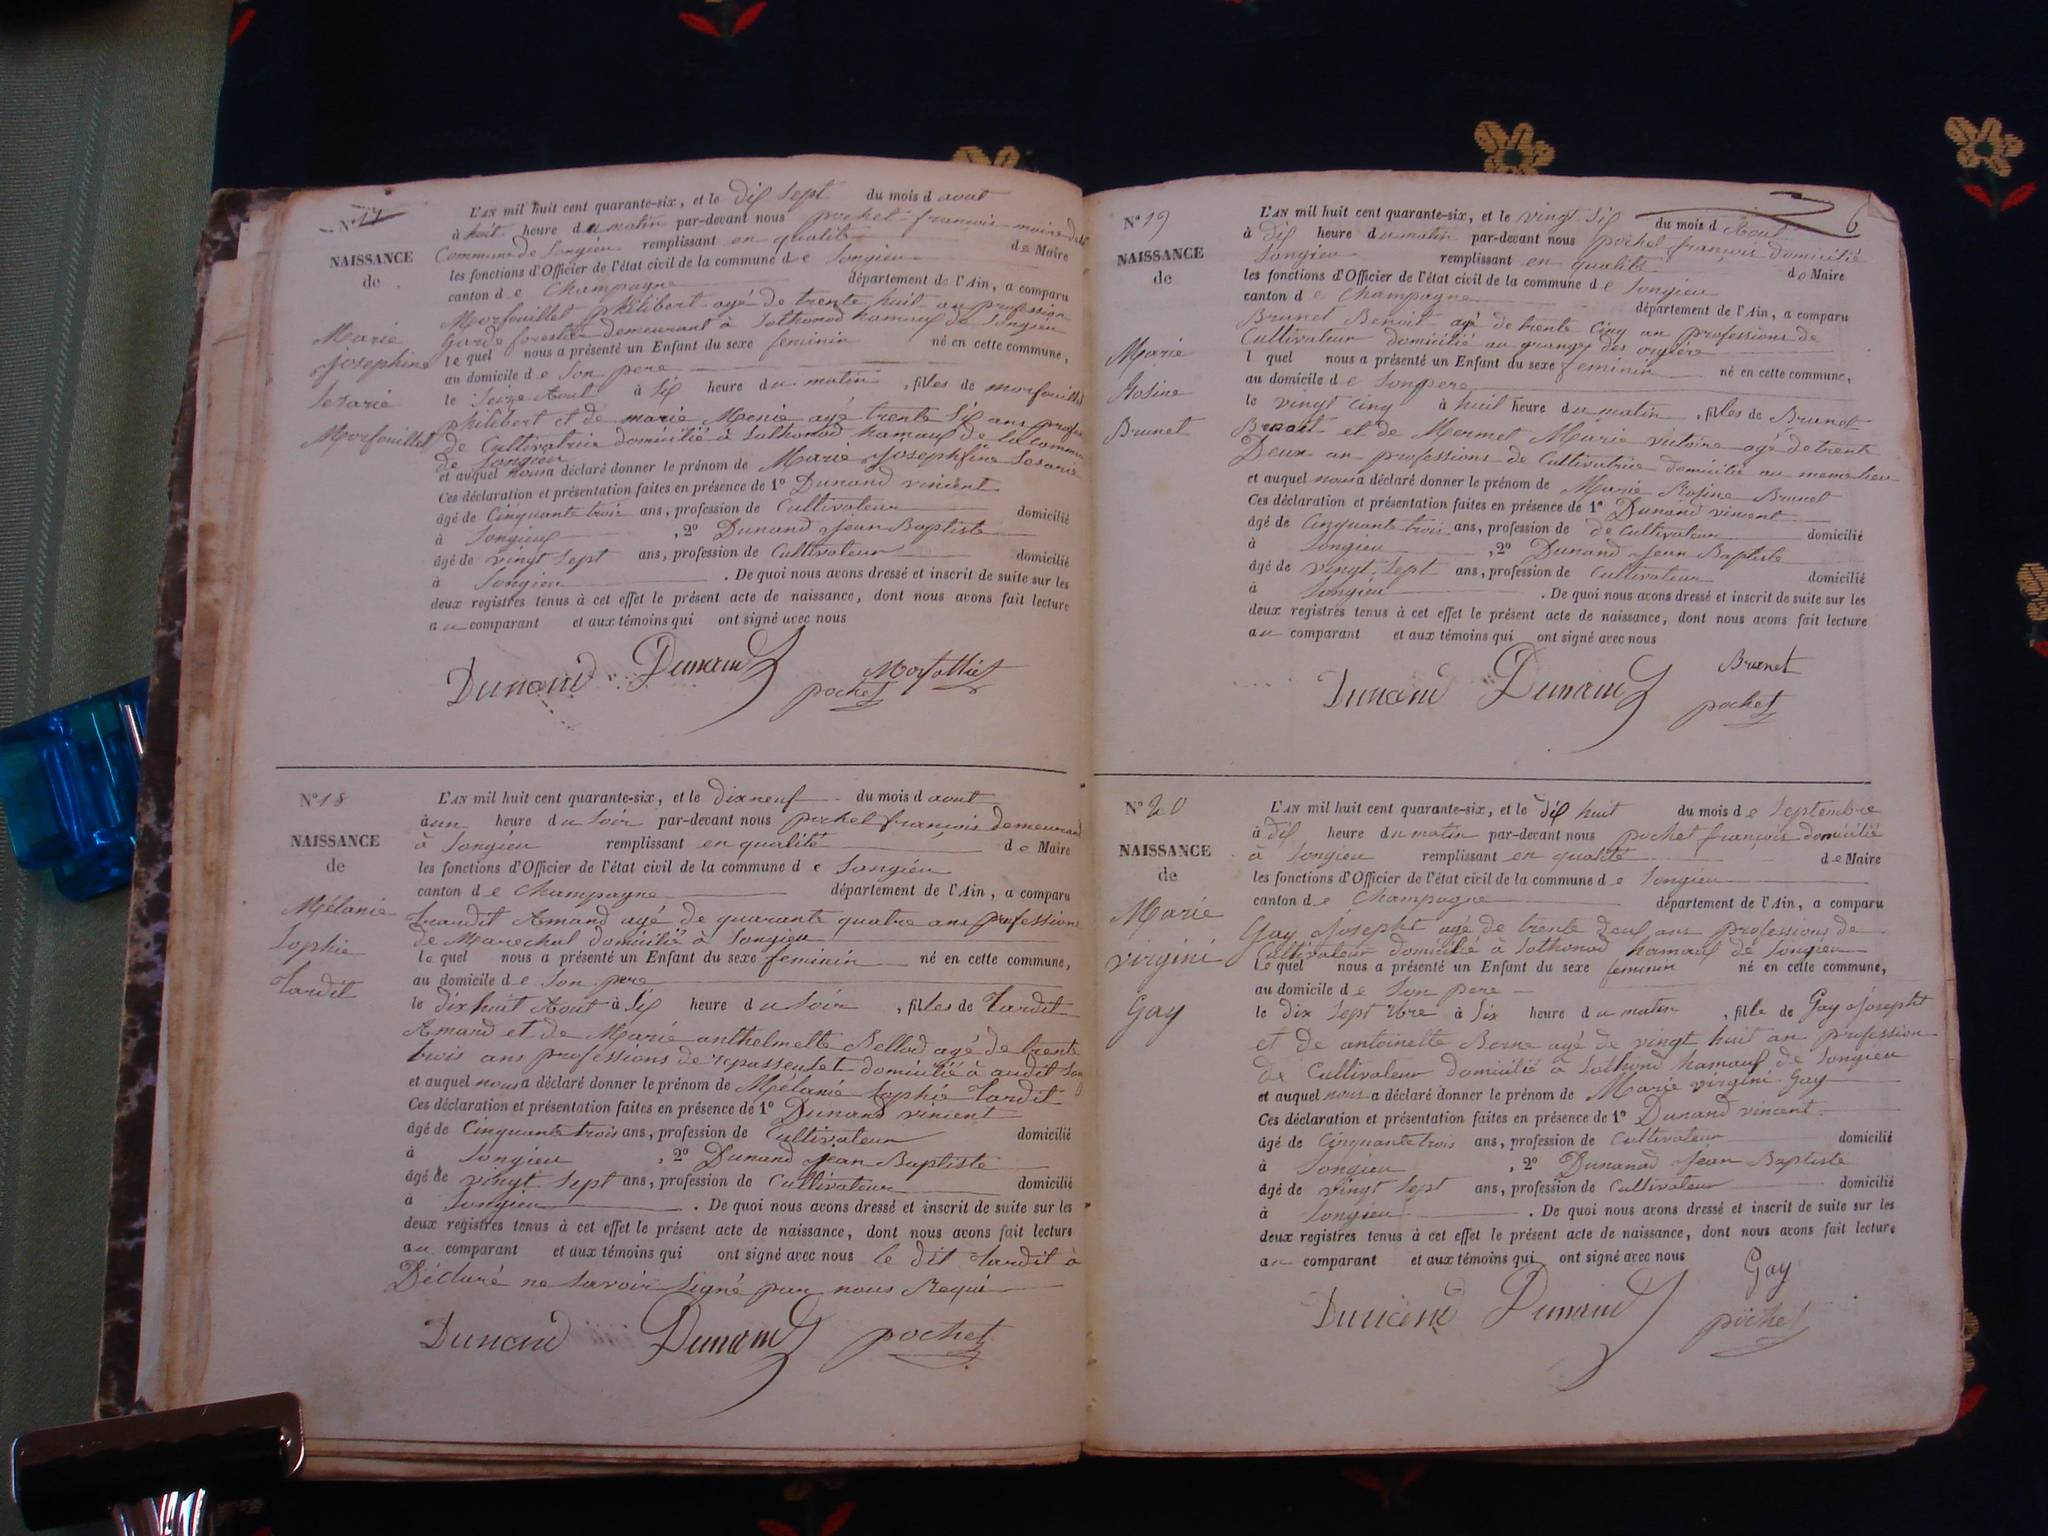 N° 17
NAISSANCE
de
Marie
Josephine
Morfouillet
L'AN mil huit cent quarante-six, et le dix sept du mois d aout
à huit heure du matin par-devant nous pochet françois maire de la
Commune de Songieu remplissant en qualité de Maire
les fonctions d'Officier de l'état civil de la commune de Songieu
canton de Champagne département de l'Ain, a comparu
Morfouillet philibert agé de trente huit an profession
Garde forestier demeurant à Sothonod hamaux de Songieu
le quel nous a présenté un Enfant du sexe feminin né en cette commune,
au domicile de Son pere
le Seize Aout à Six heure du matin, filles de morfouillet
philibert et de marie Menie agé trente Six ans profes
de Cultivatrice domicilié à Sothonod hamaux de la commune
de Songieu
et auquel nous a déclaré donner le prénom de Marie Josephine
Ces déclaration et présentation faites en présence de 1° Dunand vincent
âgé de Cinquante trois ans, profession de Cultivateur domicilié
à Songieu, 2° Dunand Jean Baptiste
âgé de vingt Sept ans, profession de Cultivateur domicilié
à Songieu. De quoi nous avons dressé et inscrit de suite sur les
deux registres tenus à cet effet le présent acte de naissance, dont nous avons fait lecture
au comparant et aux témoins qui ont signé avec nous
Dunand Dunand pochet
N° 18
NAISSANCE
de
Mélanie
Sophie
Tardit
L'AN mil huit cent quarante-six, et le dix neuf du mois d aout
à un heure du Soir par-devant nous pochet françois demeurand
à Songieu remplissant en qualité de Maire
les fonctions d'Officier de l'état civil de la commune de Songieu
canton de Champagne département de l'Ain, a comparu
Tardit Amand agé de quarante quatre ans professions
de Marechal domicilié à Songieu
le quel nous a présenté un Enfant du sexe feminin né en cette commune,
au domicile de Son pere
le dix huit Aout à Six heure du Soir, filles de Tardit
Amand et de Marie anthelmette Bellod agé de trente
trois ans professions de domicilié à audit Song
et auquel nous a déclaré donner le prénom de Mélanie Sophie Tardit
Ces déclaration et présentation faites en présence de 1° Dunand vincent
âgé de Cinquante trois ans, profession de Cultivateur domicilié
à Songieu, 2° Dunand Jean Baptiste
âgé de vingt Sept ans, profession de Cultivateur domicilié
à Songieu. De quoi nous avons dressé et inscrit de suite sur les
deux registres tenus à cet effet le présent acte de naissance, dont nous avons fait lecture
au comparant et aux témoins qui ont signé avec nous le dit Tardit à
Déclaré ne Savoir Signé par nous Requi
Dunand Dunand pochet
6
N° 19
NAISSANCE
de
Marie
Rosine
Brunet
L'AN mil huit cent quarante-six, et le vingt Six du mois d Aout
à dix heure du matin par-devant nous pochet françois domicilié
Songieu remplissant en qualité de Maire
les fonctions d'Officier de l'état civil de la commune de Songieu
canton de Champagne département de l'Ain, a comparu
Brunet Benoit agé de trente Cinq an professions de
Cultivateur domicilié au granges des
l quel nous a présenté un Enfant du sexe feminin né en cette commune,
au domicile de Son pere
le vingt Cinq à huit heure du matin, filles de Brunet
Benoit et de Mermet Marie victoire agé de trente
Deux an professions de Cultivatrice domicilié au meme lieu
et auquel nous a déclaré donner le prénom de Marie Rosine Brunet
Ces déclaration et présentation faites en présence de 1° Dunand vincent
âgé de Cinquante trois ans, profession de de Cultivateur domicilié
à Songieu, 2° Dunand Jean Baptiste
âgé de vingt Sept ans, profession de Cultivateur domicilié
à Songieu. De quoi nous avons dressé et inscrit de suite sur les
deux registres tenus à cet effet le présent acte de naissance, dont nous avons fait lecture
au comparant et aux témoins qui ont signé avec nous
Dunand Dunand Brunet
pochet
N° 20
NAISSANCE
de
Marie
virgini
Gay
L'AN mil huit cent quarante-six, et le dix huit du mois de Septembre
à dix heure du matin par-devant nous pochet françois domicilié
à Songieu remplissant en qualité de Maire
les fonctions d'Officier de l'état civil de la commune de Songieu
canton de Champagne département de l'Ain, a comparu
Gay Josepht agé de trente deux ans professions de
Cultivateur domicilié à Sothonod hamaux de Songieu
le quel nous a présenté un Enfant du sexe feminin né en cette commune,
au domicile de Son pere
le dix Sept 7bre à Six heure du matin, fille de Gay Josepht
et de antoinette Berne agé de vingt huit an profession
de Cultivateur domicilié à Sothonod hamaux de Songieu
et auquel nous a déclaré donner le prénom de Marie virgini Gay
Ces déclaration et présentation faites en présence de 1° Dunand vincent
âgé de Cinquante trois ans, profession de Cultivateur domicilié
à Songieu, 2° Dunand Jean Baptiste
âgé de vingt Sept ans, profession de Cultivateur domicilié
à Songieu. De quoi nous avons dressé et inscrit de suite sur les
deux registres tenus à cet effet le présent acte de naissance, dont nous avons fait lecture
au comparant et aux témoins qui ont signé avec nous
Dunand Dunand Gay
pochet